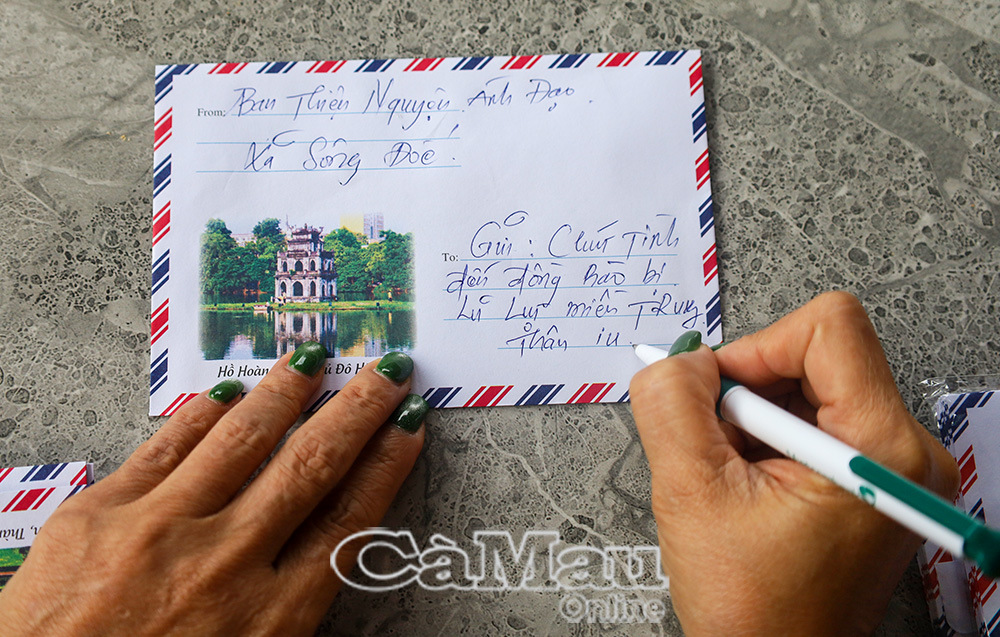 From: Ban Thiện Nguyện Ánh Đạo.
Xã Sông Đốc.
To: Gửi: Chút Tình
đến đồng bào bị
Lũ Lụt miền Trung
Thân iu.
Hồ Hoàn
CàMau
Online